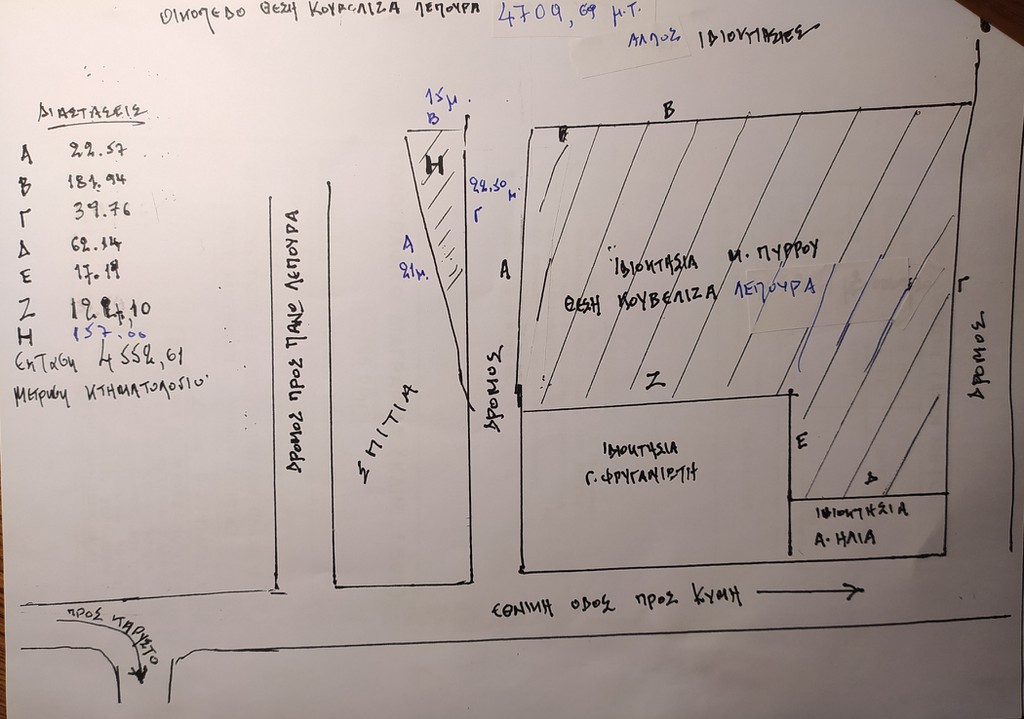 ΟΙΚΟΠΕΔΟ ΘΕΣΗ ΚΟΥΒΕΛΙΖΑ ΛΕΠΟΥΡΑ 4709,69 μ.τ.
ΑΛΛΟΣ ΙΔΙΟΚΤΗΣΙΕΣ
ΔΙΑΣΤΑΣΕΙΣ
Α 22.57
Β 181.94
Γ 39.76
Δ 62.14
Ε 17.19
Ζ 122,10
Η 157.00
Εκταση 4552,61
Μετρηση ΚΤΗΜΑΤΟΛΟΓΙΟ
15μ.
Β
Η
22,50 μ.
Γ
Α
21μ.
ΔΡΟΜΟΣ ΠΡΟΣ ΠΑΝΩ ΛΕΠΟΥΡΑ
ΣΠΙΤΙΑ
ΔΡΟΜΟΣ
Α
Β
ΙΔΙΟΚΤΑΣΙΑ Μ. ΠΥΡΡΟΥ
ΘΕΣΗ ΚΟΥΒΕΛΙΖΑ ΛΕΠΟΥΡΑ
Γ
ΔΡΟΜΟΣ
Ζ
Ε
Δ
ΙΔΙΟΚΤΗΣΙΑ
Γ. ΦΡΥΓΑΝΙΕΤΗ
ΙΔΙΟΚΤΗΣΙΑ
Α. ΗΛΙΑ
ΕΘΝΙΚΗ ΟΔΟΣ ΠΡΟΣ ΚΥΜΗ
ΠΡΟΣ ΚΑΡΥΣΤΟ